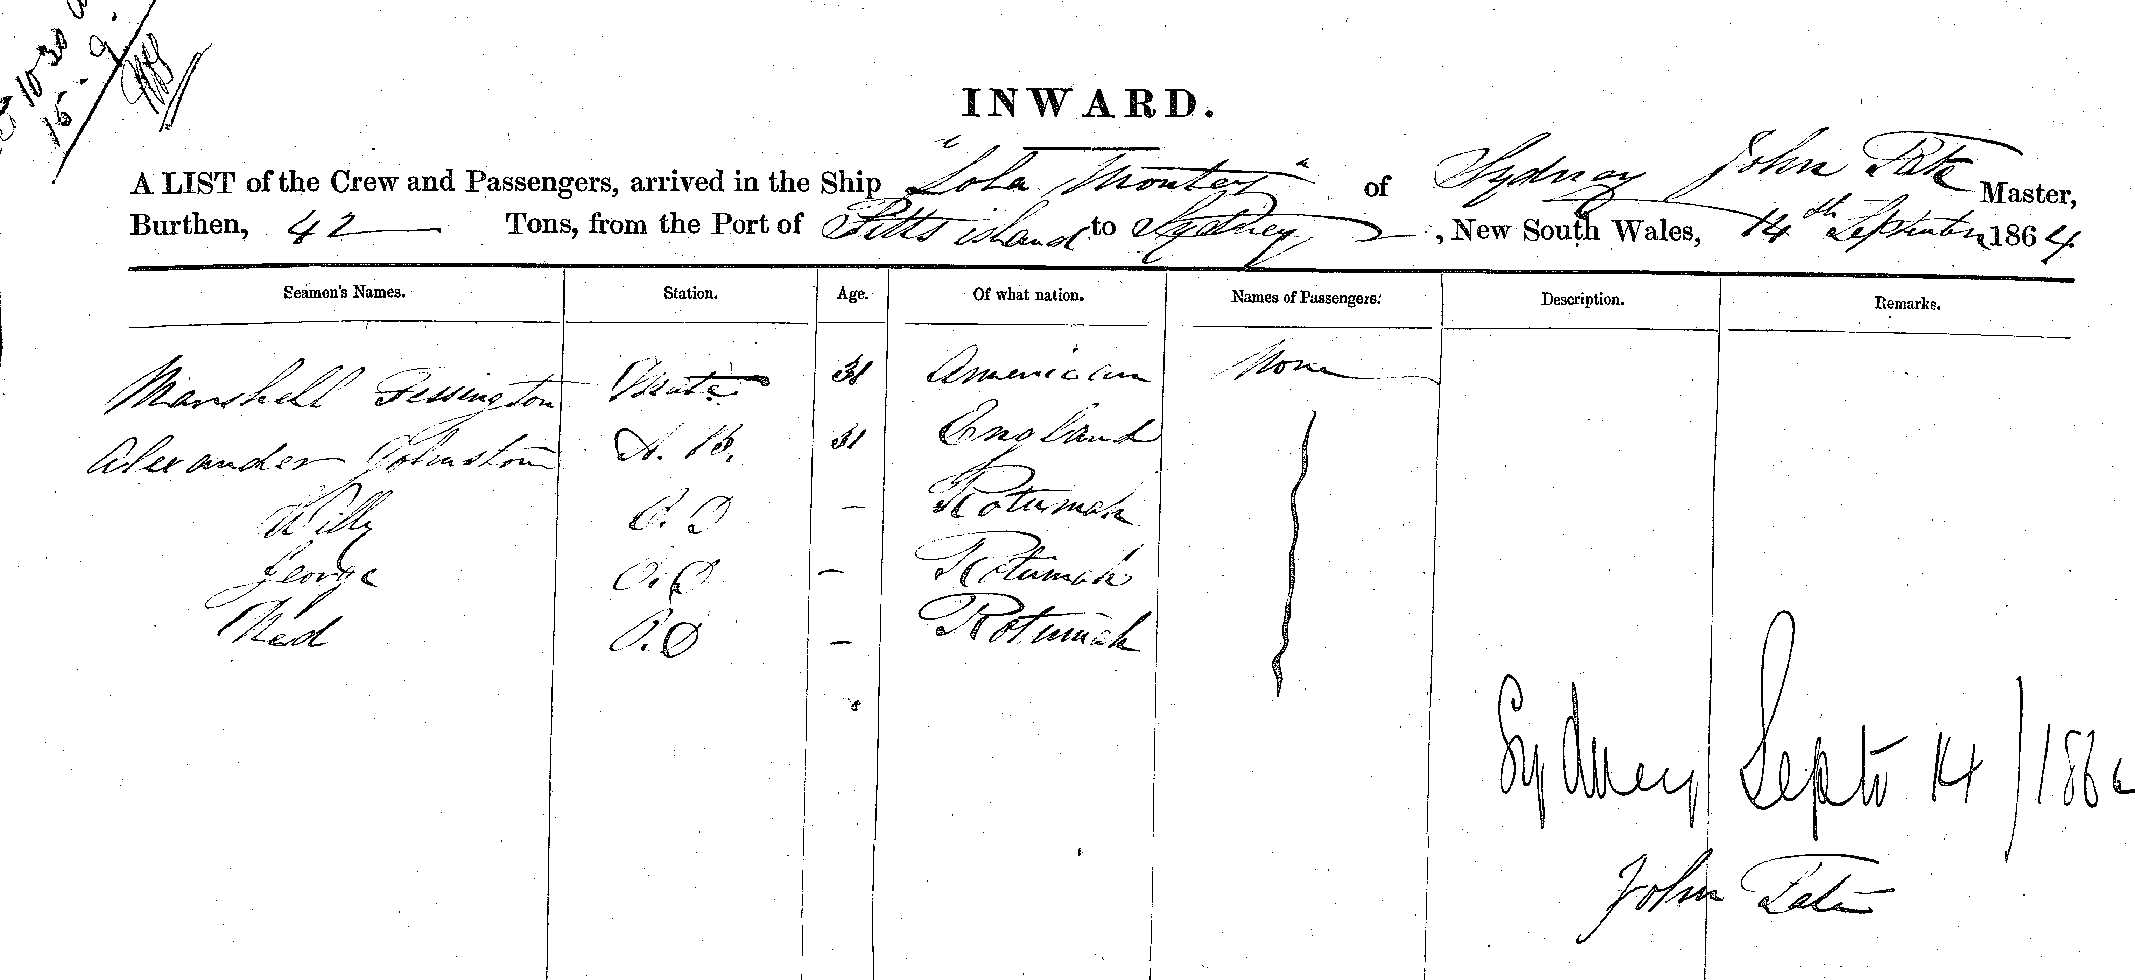 10 30
15-9
INWARD.
A LIST of the Crew and Passengers, arrived in the Ship "Lola Montez" of Sydney John Tate Master,
Burthen, 42 Tons, from the Port of Pitts island to Sydney, New South Wales, 14th September 1864
Seamen's Names. Station. Age. Of what nation. Names of Passengers. Description. Remarks.
Marshell Fessington Mate 31 American None
Alexander Johnston A.B. 31 England
Willy O.D — Rotumah
George O.D — Rotumah
Ned O.D — Rotumah
Sydney Septr 14/186
John Tate